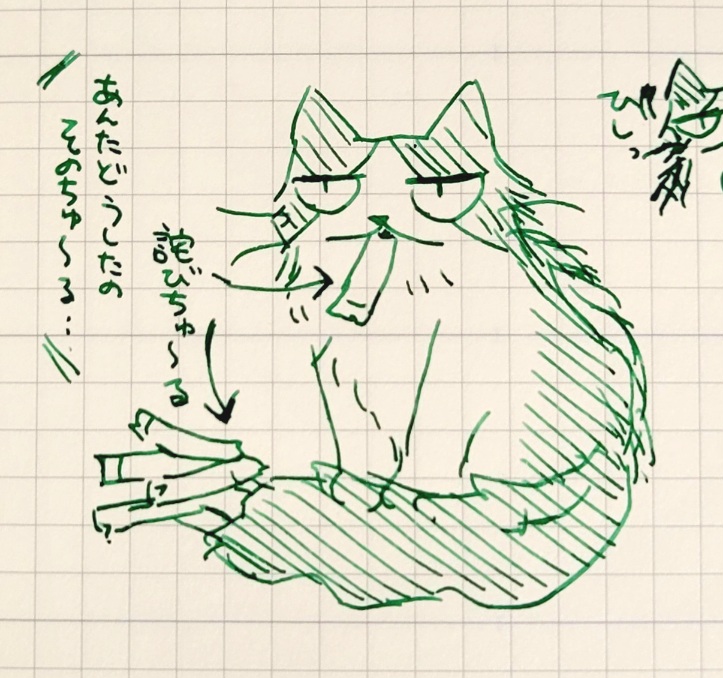 あんたどうしたの
そのちゅ〜る…
詫びちゅ〜る
びしっ